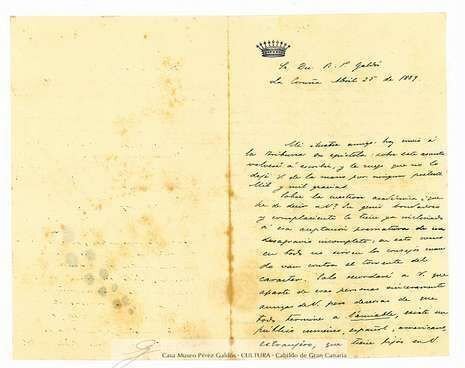 Sr. Dn. B. P. Galdós
La Coruña Abril 25 de 1889.
Mi ilustre amigo: hoy envío á
la Tribuna su epístola: sobre este asunto
volveré á escribir, y le ruego que no lo
deje V. de la mano por ningún pretexto
Mil y mil gracias
Sobre la cuestión académica ¿qué
he de decir a V? Su genio bondadoso
y complaciente le tiene ya inclinado
á esa aceptación prematura de un
desagravio incompleto; en este mundo
en todo no sirven los consejos cuando
van contra el torrente del
carácter. Solo recordaré á V. que
aparte de esas personas sinceramente
amigas de V. pero deseosas de que
todo termine á l'amiable, existe un
público inmenso, español, americano,
extranjero, que tiene fijos en V.
Casa Museo Pérez Galdós - CULTURA - Cabildo de Gran Canaria